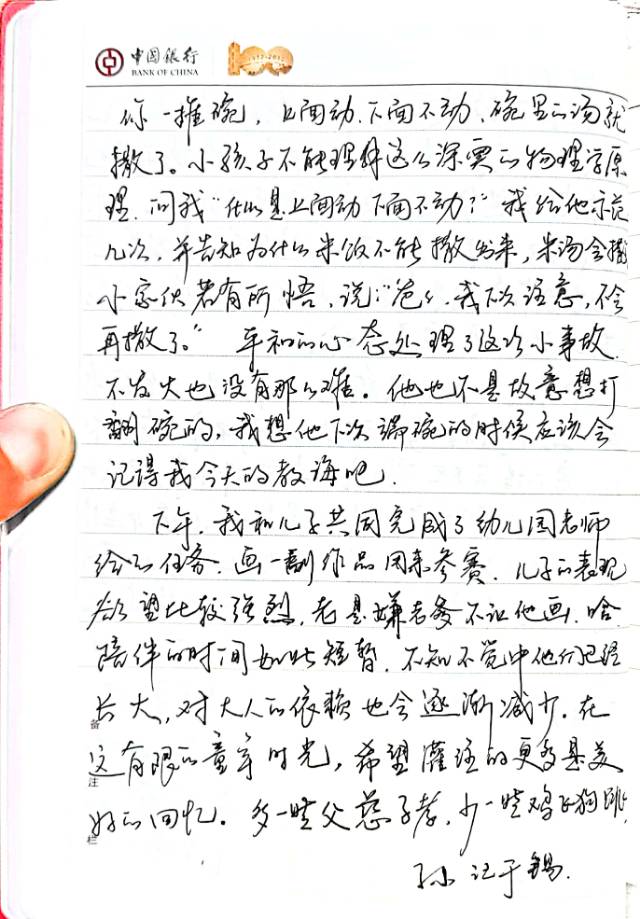 中国银行
BANK OF CHINA
1912-2012
你一推碗，上面动、下面不动，碗里的汤就
撒了。小孩子不能理解这么深奥的物理学原
理，问我“什么是上面动下面不动？”我给他示范
几次，并告知为什么米饭不能撒出来，米汤会撒
小家伙若有所悟，说：“爸爸，我下次注意，不会
再撒了。”平和的心态处理了这次小事故，
不发火也没有那么难。他也不是故意想打
翻碗的，我想他下次端碗的时候应该会
记得我今天的教诲吧。
下午，我和儿子共同完成了幼儿园老师
给的任务：画一副作品用来参赛。儿子的表现
欲望比较强烈，老是嫌老爹不让他画。哈
陪伴的时间如此短暂，不知不觉中他们已经
长大，对大人的依赖也会逐渐减少。在
这有限的童年时光，希望灌注的更多是美
好的回忆。多一些父慈子孝，少一些鸡飞狗跳
孙 记于锡.
备
注
栏